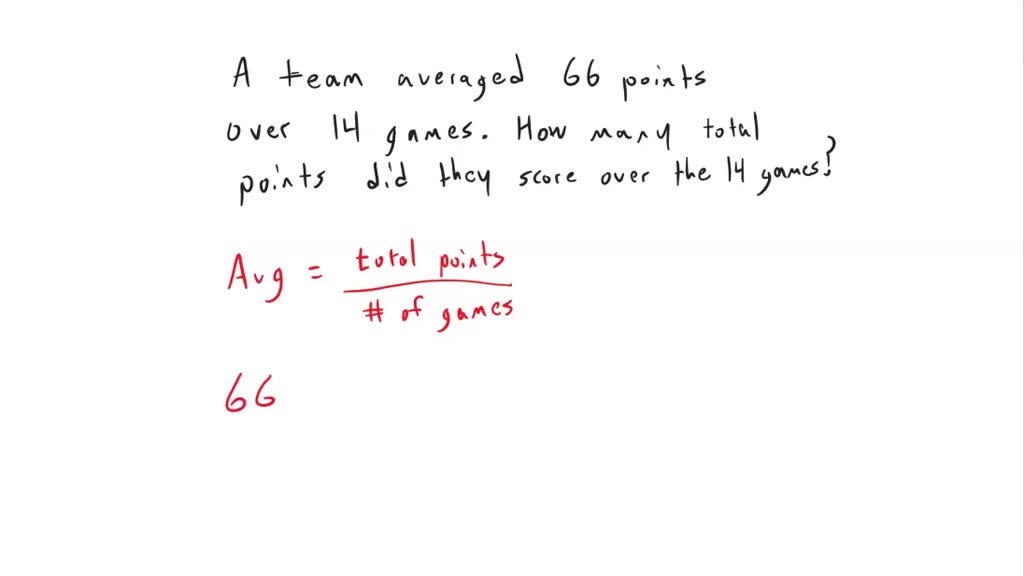 A team averaged 66 points
over 14 games. How many total
points did they score over the 14 games?
Avg = total points
# of games
66